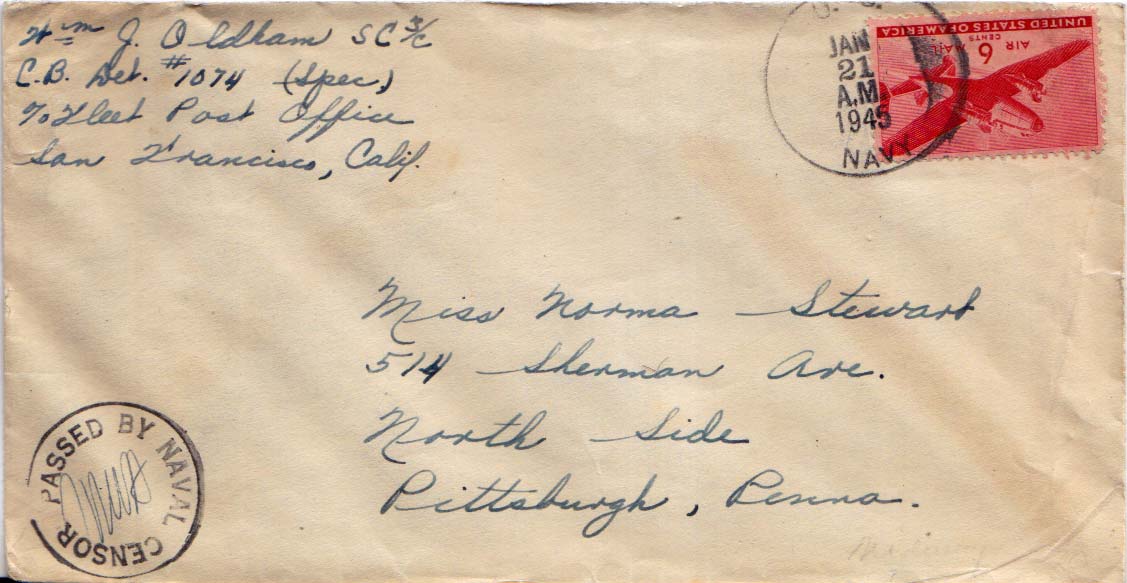 Wm J. Oldham SC 3/C
C.B. Det. #1074 (Spec.)
℅ Fleet Post Office
San Francisco, Calif.
U. S.
JAN
21
A.M
1945
NAVY
UNITED STATES OF AMERICA
AIR MAIL
6 CENTS
Miss Norma Stewart
514 Sherman Ave.
North Side
Pittsburgh, Penna.
PASSED BY NAVAL CENSOR